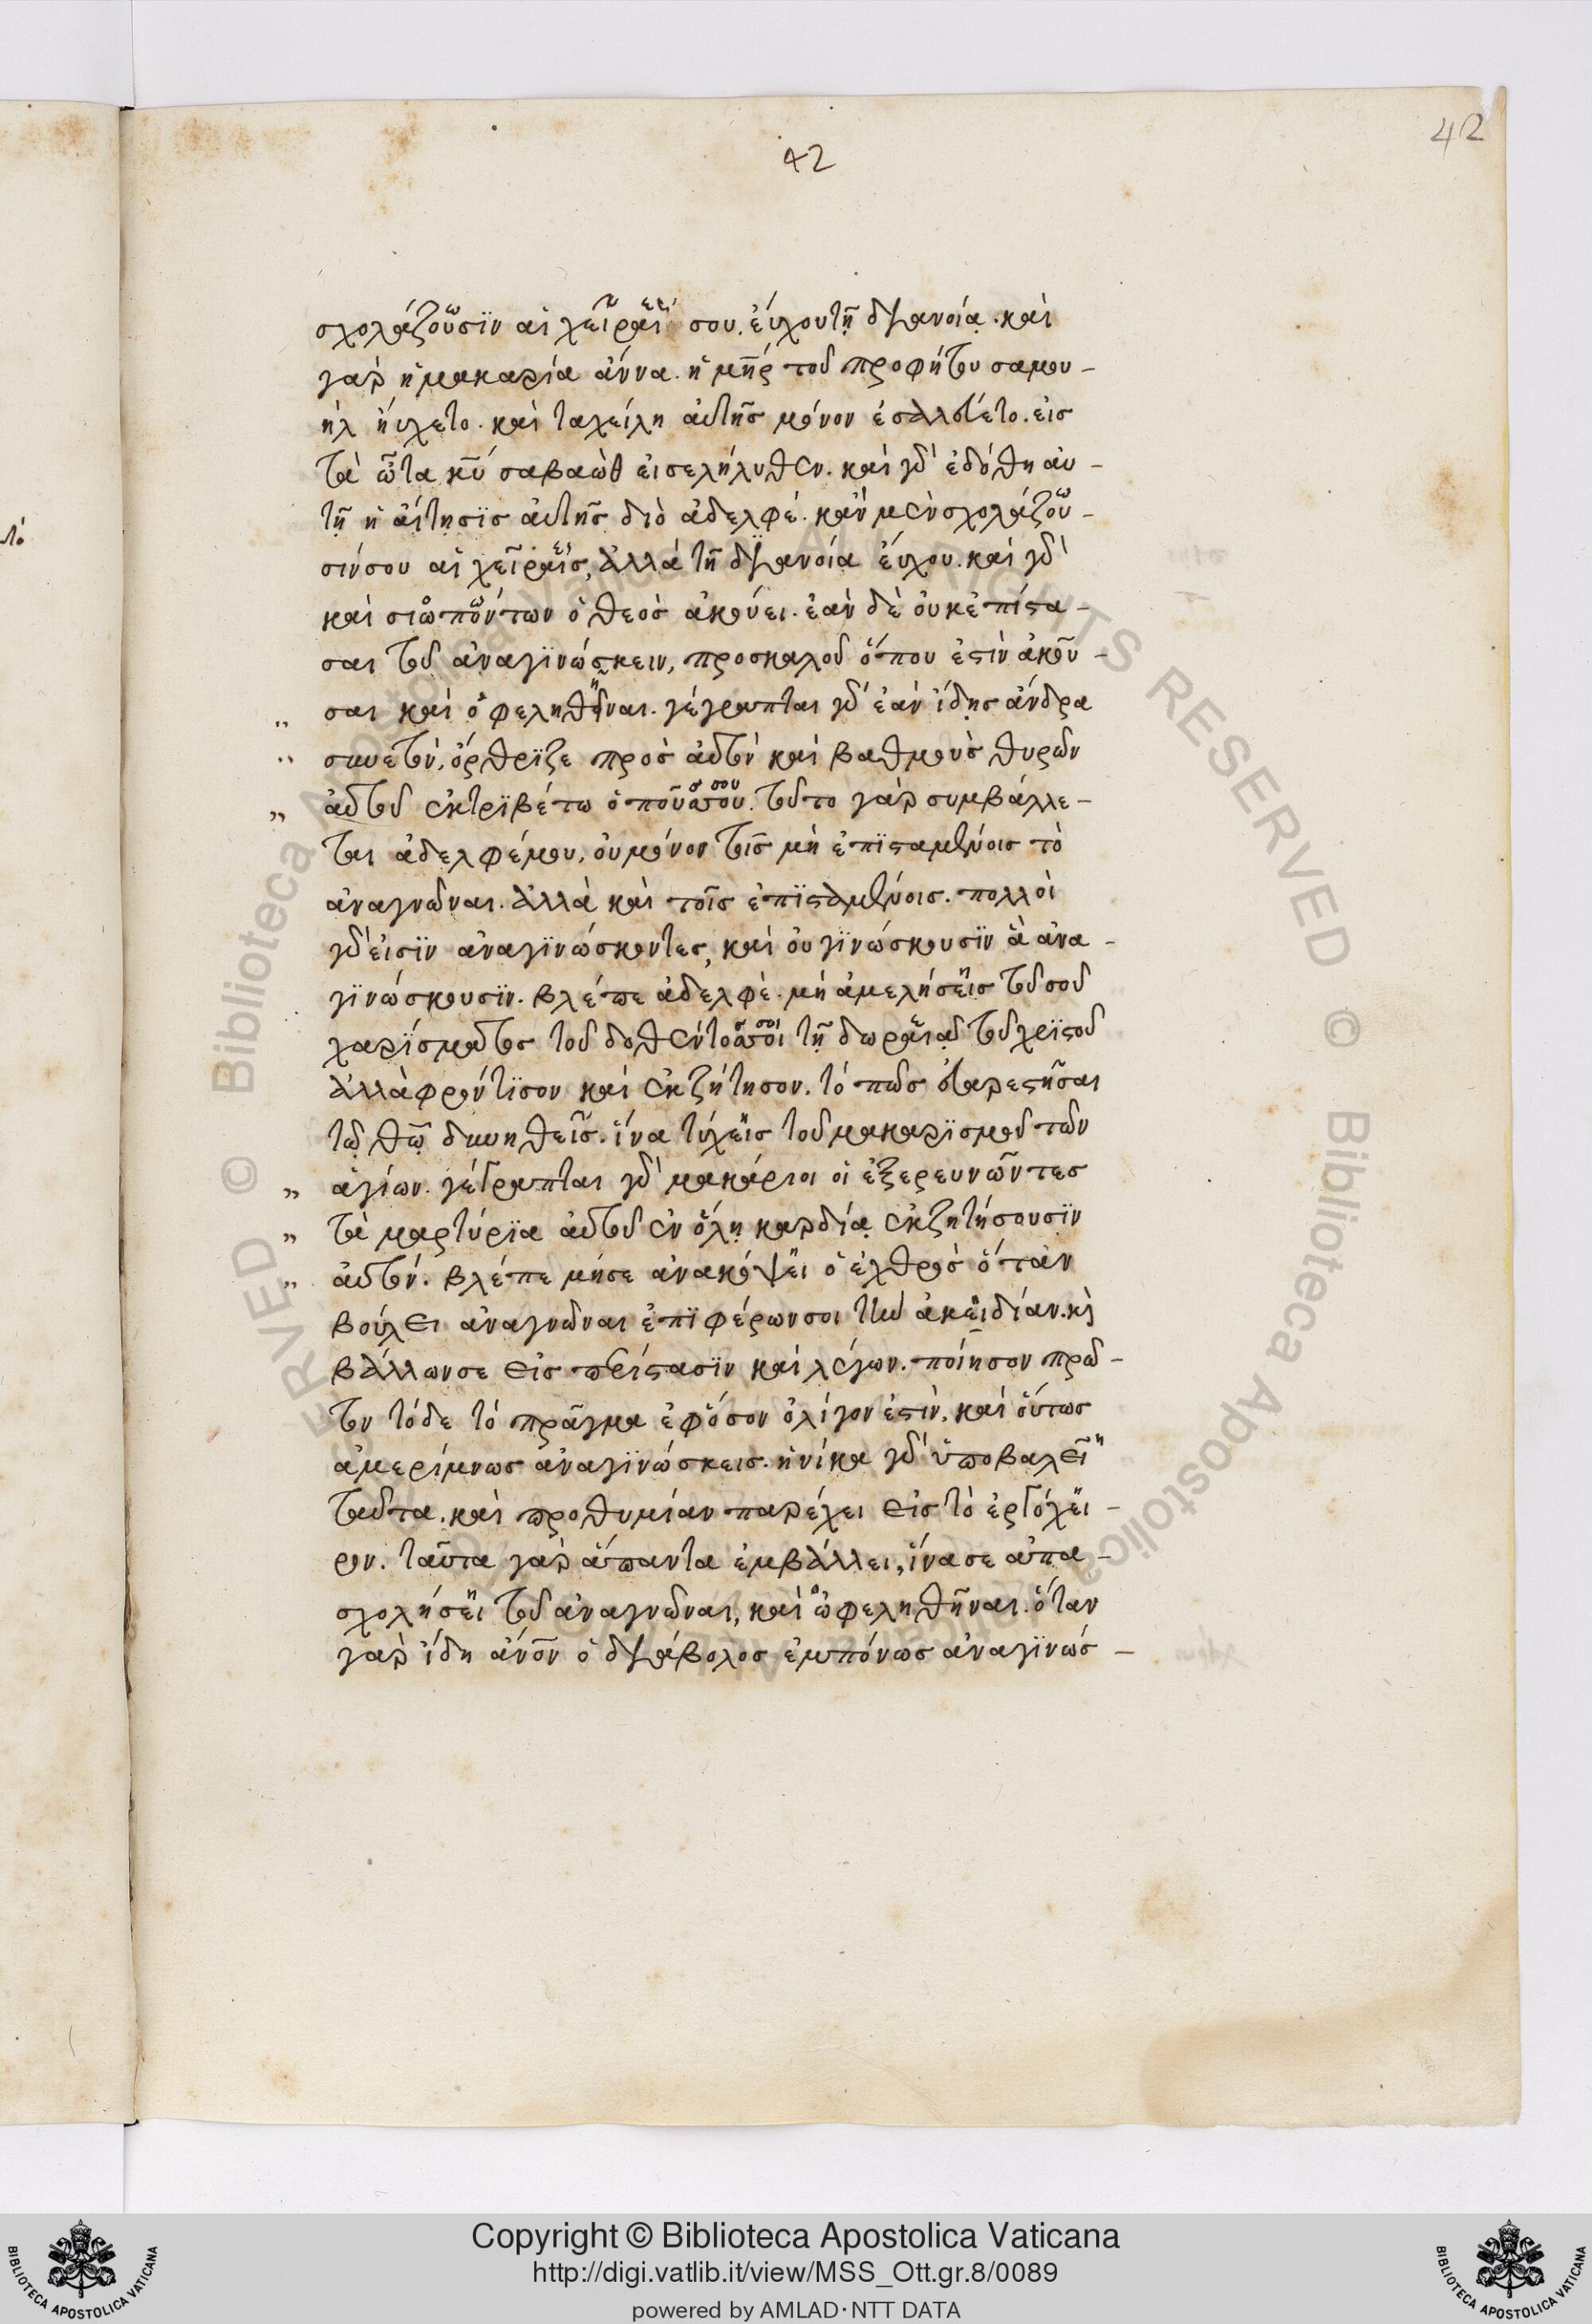 42
42
σχολάζουσϊν αἱ χεῖρές σου. ἐύχου τῇ διανοίᾳ. καὶ
γὰρ ἡ μακαρία ἄννα. ἡ μῆρ τοῦ προφήτου σαμου-
ὴλ ἠύχετο. καὶ τα χείλη ἀυτῆς μόνον ἐσαλεύετο. εἰς
τὰ ὦτα κῡ σαβαὼθ εἰσελήλυθεν. καὶ γὰρ ἐδόθη ἀυ-
τῇ ἡ ἄιτησϊς ἀυτῆς διὸ ἀδελφέ. κἂν μὲν σχολάζου-
σίν σου αἱ χεῖρες, ἀλλὰ τῇ διανοία ἔυχου. καὶ γὰρ
καὶ σιωπώντων ὁ θεὸς ἀκούει. ἐὰν δὲ ουκ ἐπίστα-
σαι τοῦ ἀναγϊνώσκειν, προσκαλοῦ ὅπου ἐστὶν ἀκοῦ-
σαι καὶ ὀφεληθῆναι. γέγραπται γὰρ ἐὰν ἴδῃς ἄνδρα
συνετὸν, ὄρθρϊζε πρὸς ἀυτὸν καὶ βαθμοὺς θυρῶν
ἀυτοῦ ἐκτρϊβέτω ὁ ποῦς σου. τοῦτο γὰρ συμβάλλε-
ται ἀδελφέ μου, ου μόνον τοῖς μὴ ἐπϊσταμένοις τὸ
ἀναγνῶναι. ἀλλὰ καὶ τοῖς ἐπϊσταμένοις. πολλοὶ
γὰρ εἰσϊν ἀναγϊνώσκοντες, καὶ ου γϊνώσκουσϊν ἃ ἀνα-
γϊνώσκουσϊν. βλέπε ἀδελφὲ. μὴ ἀμελήσεις τοῦ σοῦ
χαρίσματος τοῦ δοθέντος σοί τῇ δωρεᾷ τοῦ χρϊστοῦ
ἀλλὰ φρόντϊσον καὶ ἐκζήτησον. τό πῶς ἐυαρεστῆσαι
τῷ θῶ δυνηθεῖς. ἵνα τύχεις τοῦ μακαρϊσμοῦ τῶν
ἁγίων. γέγραπται γὰρ μακάριοι οἱ ἐξερευνῶντες
τὰ μαρτύρϊα ἀυτοῦ ἐν ὅλῃ καρδίᾳ ἐκζητήσουσϊν
ἀυτόν. βλέπε μήσε ἀνακόψει ὁ ἐχθρὸς ὅταν
βούλει ἀναγνῶναι ἐπϊφέρων σοι τὴν ἀκειδίαν. κὶ
βάλλων σε εἰς περίστασϊν καὶ λέγων. ποίησον πρῶ-
τον τόδε τὸ πρᾶγμα ἐφόσον ὀλίγον ἐστὶν, καὶ ὅυτως
ἀμερίμνως ἀναγϊνώσκεις. ἡνίκα γὰρ ὑποβαλεῖ
ταῦτα. καὶ προθυμίαν παρέχει εἰς τὸ ἐργόχει-
ρον. ταῦτα γὰρ ἅπαντα ἐμβάλλει, ἵνα σε ἀπα-
σχολήσει τοῦ ἀναγνῶναι, καὶ ὠφεληθῆναι. ὅταν
γὰρ ἴδη ἄνον ὁ διάβολος ἐμπόνως ἀναγϊνώσ-
Copyright © Biblioteca Apostolica Vaticana
http://digi.vatlib.it/view/MSS_Ott.gr.8/0089
powered by AMLAD·NTT DATA
BIBLIOTECA APOSTOLICA VATICANA
BIBLIOTECA APOSTOLICA VATICANA